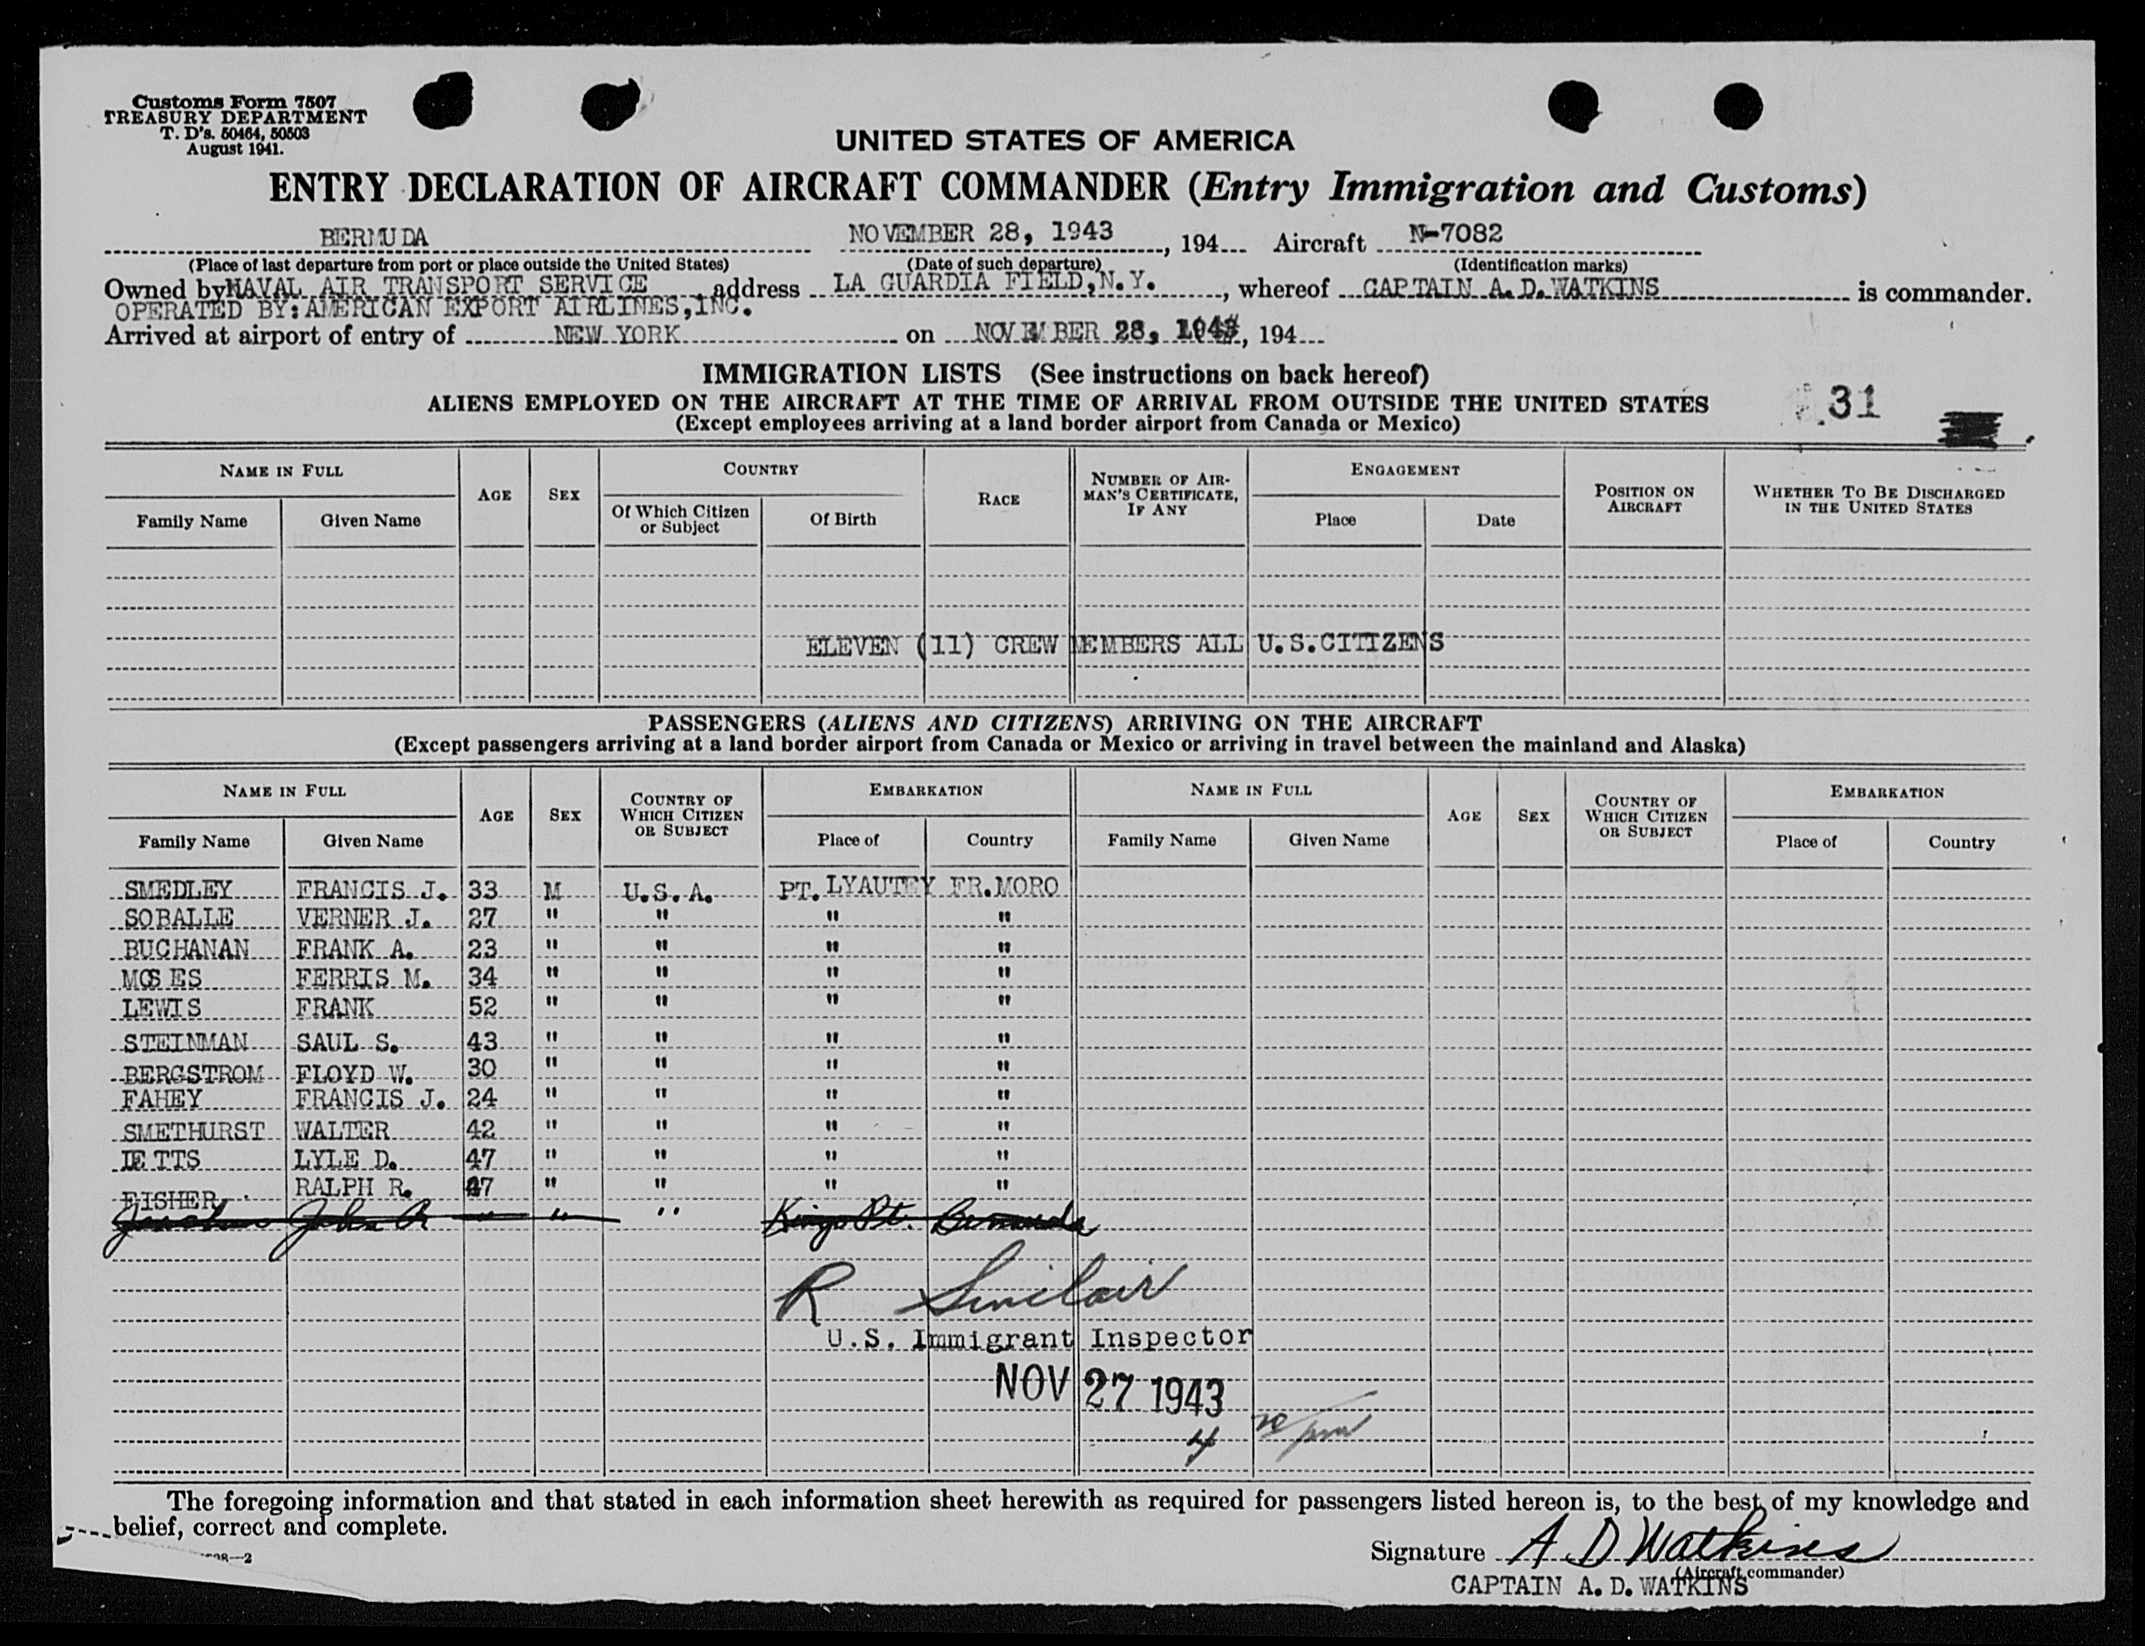 Customs Form 7507
TREASURY DEPARTMENT
T. D's. 50464, 50503
August 1941.
UNITED STATES OF AMERICA
ENTRY DECLARATION OF AIRCRAFT COMMANDER (Entry Immigration and Customs)
BERMUDA NOVEMBER 28, 1943, 194 Aircraft N-7082
(Place of last departure from port or place outside the United States) (Date of such departure) (Identification marks)
Owned by NAVAL AIR TRANSPORT SERVICE address LA GUARDIA FIELD, N.Y., whereof CAPTAIN A.D.WATKINS is commander.
OPERATED BY: AMERICAN EXPORT AIRLINES, INC.
Arrived at airport of entry of NEW YORK on NOVEMBER 28, 1943, 194
IMMIGRATION LISTS (See instructions on back hereof)
ALIENS EMPLOYED ON THE AIRCRAFT AT THE TIME OF ARRIVAL FROM OUTSIDE THE UNITED STATES
31
(Except employees arriving at a land border airport from Canada or Mexico)
NAME IN FULL AGE SEX COUNTRY RACE NUMBER OF AIRMAN'S CERTIFICATE, IF ANY ENGAGEMENT POSITION ON AIRCRAFT WHETHER TO BE DISCHARGED IN THE UNITED STATES
Family Name Given Name Of Which Citizen or Subject Of Birth Place Date
ELEVEN (11) CREW MEMBERS ALL U.S.CITIZENS
PASSENGERS (ALIENS AND CITIZENS) ARRIVING ON THE AIRCRAFT
(Except passengers arriving at a land border airport from Canada or Mexico or arriving in travel between the mainland and Alaska)
NAME IN FULL AGE SEX COUNTRY OF WHICH CITIZEN OR SUBJECT EMBARKATION NAME IN FULL AGE SEX COUNTRY OF WHICH CITIZEN OR SUBJECT EMBARKATION
Family Name Given Name Place of Country Family Name Given Name Place of Country
SMEDLEY FRANCIS J. 33 M U.S.A. PT. LYAUTEY FR.MORO
SOBALLE VERNER J. 27 " " " "
BUCHANAN FRANK A. 23 " " " "
MOSES FERRIS M. 34 " " " "
LEWIS FRANK 52 " " " "
STEINMAN SAUL S. 43 " " " "
BERGSTROM FLOYD W. 30 " " " "
FAHEY FRANCIS J. 24 " " " "
SMETHURST WALTER 42 " " " "
IETTS LYLE D. 47 " " " "
FISHER RALPH R. 47 " " " "
John R " " " Kings Pt. Bermuda
R Sinclair
U.S. Immigrant Inspector
NOV 27 1943
4 pm
The foregoing information and that stated in each information sheet herewith as required for passengers listed hereon is, to the best of my knowledge and
belief, correct and complete.
Signature A. D Watkins
(Aircraft commander)
CAPTAIN A. D. WATKINS